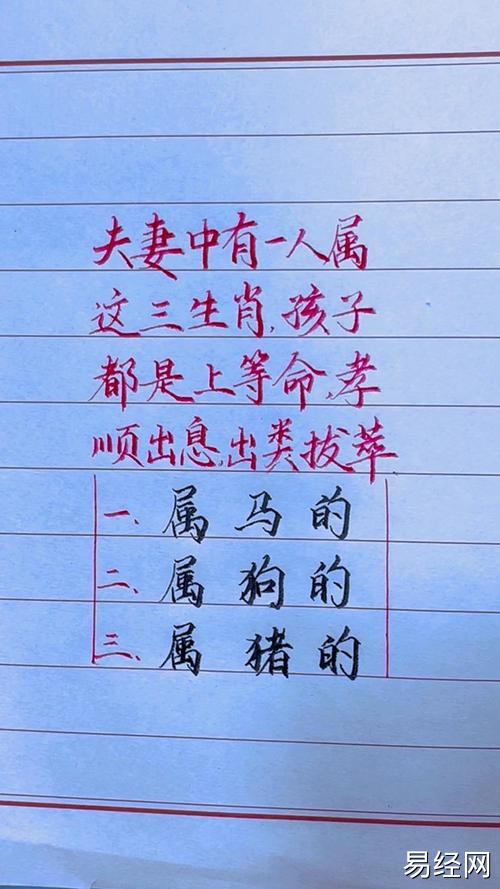 夫妻中有一人属
这三生肖,孩子
都是上等命,孝
顺出息,出类拔萃
一、属马的
二、属狗的
三、属猪的
易经网